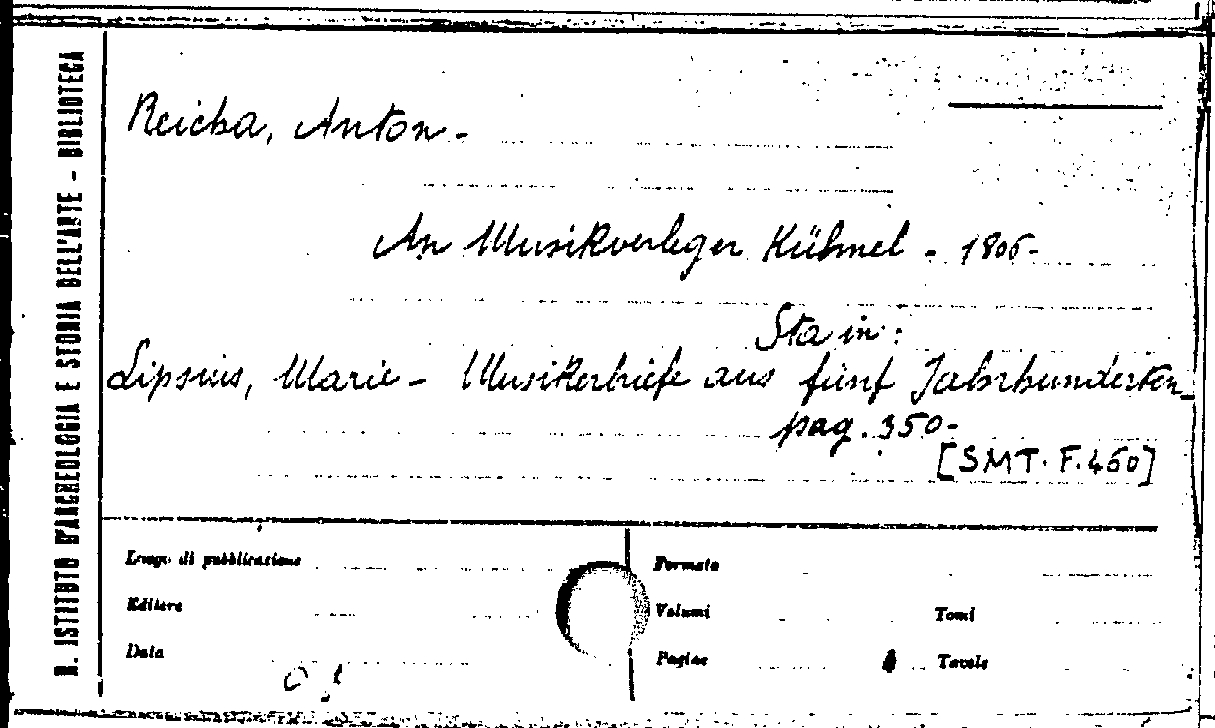 R. ISTITUTO D'ARCHEOLOGIA E STORIA DELL'ARTE - BIBLIOTECA
Reicha, Anton -
An Musikverleger Kühnel - 1806-
Sta in:
Lipsius, Marie - Musikerbriefe aus fünf Jahrhunderten -
pag. 350-
[SMT. F. 460]
Luogo di pubblicazione
Formato
Editore
Volumi
Tomi
Data
Pagine
Tavole